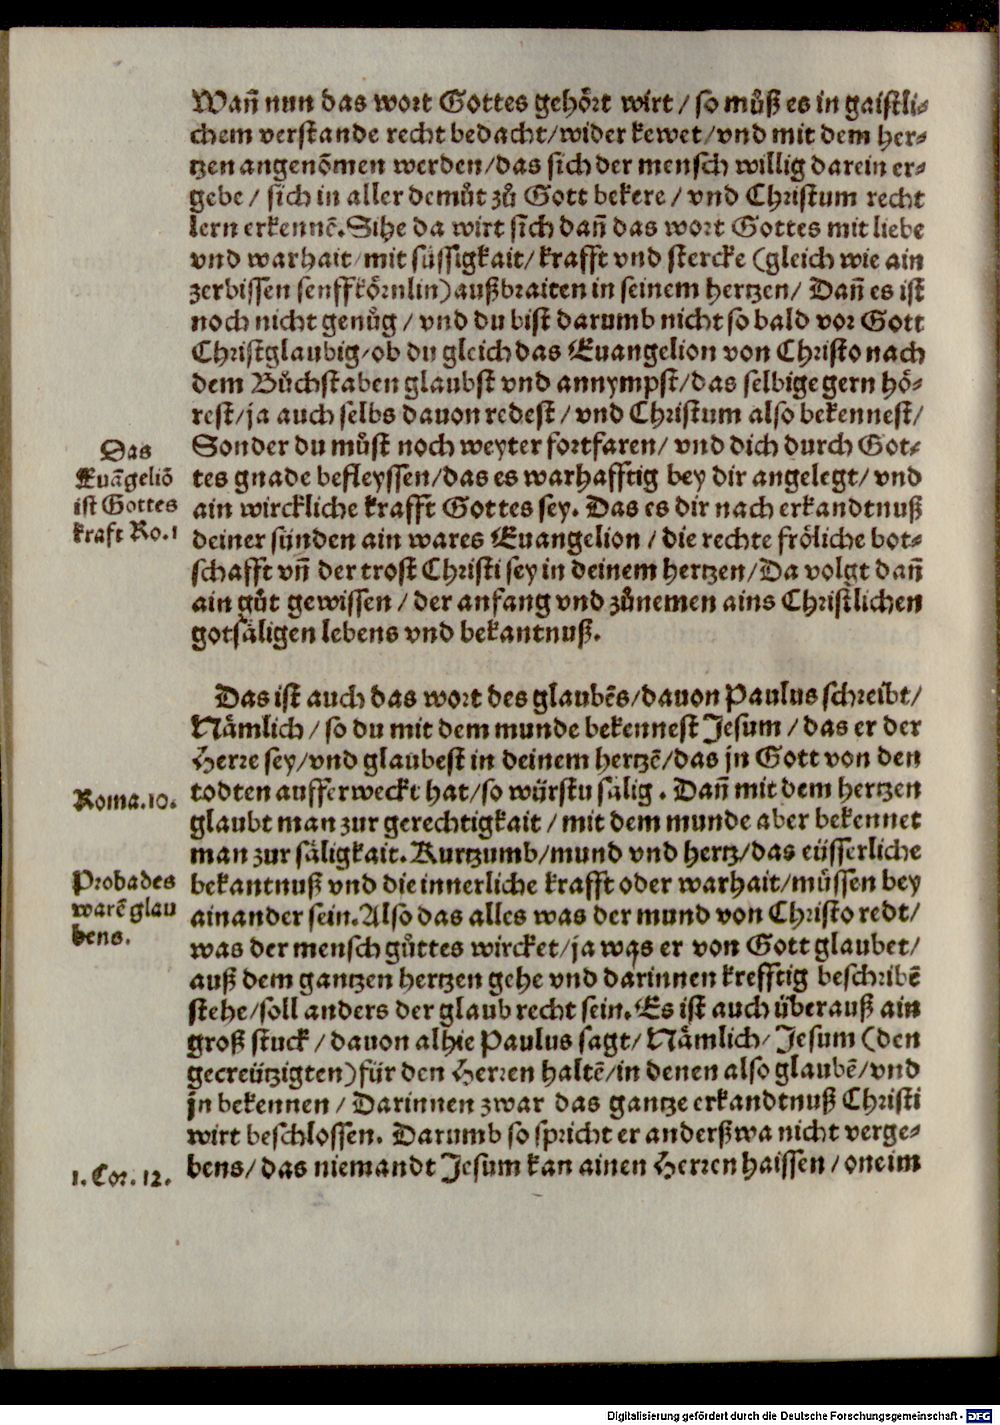 Wañ nun das wort Gottes gehoͤrt wirt / so muͦß es in gaistli⸗
chem verstande recht bedacht/wider kewet/vnd mit dem her⸗
tzen angenom̃en werden/das sich der mensch willig darein er⸗
gebe / sich in aller demuͦt zuͦ Gott bekere / vnd Christum recht
lern erkennē. Sihe da wirt sich dañ das wort Gottes mit liebe
vnd warhait/mit süssigkait/krafft vnd stercke (gleich wie ain
zerbissen senffkoͤrnlin) außbraiten in seinem hertzen/ Dañ es ist
noch nicht genuͦg / vnd du bist darumb nicht so bald vor Gott
Christglaubig/ob du gleich das Euangelion von Christo nach
dem Buͦchstaben glaubst vnd annympst/das selbige gern hoͤ⸗
rest/ja auch selbs dauon redest / vnd Christum also bekennest/
Sonder du muͦst noch weyter fortfaren/ vnd dich durch Got⸗
tes gnade befleyssen/das es warhafftig bey dir angelegt/ vnd
ain wirckliche krafft Gottes sey. Das es dir nach erkandtnuß
deiner sünden ain wares Euangelion / die rechte froͤliche bot⸗
schafft vñ der trost Christi sey in deinem hertzen/Da volgt dañ
ain guͦt gewissen / der anfang vnd zuͦnemen ains Christlichen
gotsaͤligen lebens vnd bekantnuß.
Das
Euāgeliō
ist Gottes
kraft Ro.1
Das ist auch das wort des glaubēs/dauon Paulus schreibt/
Naͤmlich / so du mit dem munde bekennest Jesum / das er der
Herre sey/vnd glaubest in deinem hertzē/das jn Gott von den
todten aufferweckt hat/so würstu saͤlig . Dañ mit dem hertzen
glaubt man zur gerechtigkait / mit dem munde aber bekennet
man zur saͤligkait. Kurtzumb/mund vnd hertz/das eüsserliche
bekantnuß vnd die innerliche krafft oder warhait/müssen bey
ainander sein. Also das alles was der mund von Christo redt/
was der mensch guͦttes wircket/ja was er von Gott glaubet/
auß dem gantzen hertzen gehe vnd darinnen krefftig beschribē
stehe/soll anders der glaub recht sein. Es ist auch überauß ain
groß stuck / dauon alhie Paulus sagt/ Naͤmlich/ Jesum (den
gecreützigten) für den Herren haltē/in denen also glaubē/vnd
jn bekennen / Darinnen zwar das gantze erkandtnuß Christi
wirt beschlossen. Darumb so spricht er anderßwa nicht verge⸗
bens/ das niemandt Jesum kan ainen Herren haissen / one im
Roma.10.
Proba des
warē glau
bens.
1. Cor. 12.
Digitalisierung gefördert durch die Deutsche Forschungsgemeinschaft - DFG